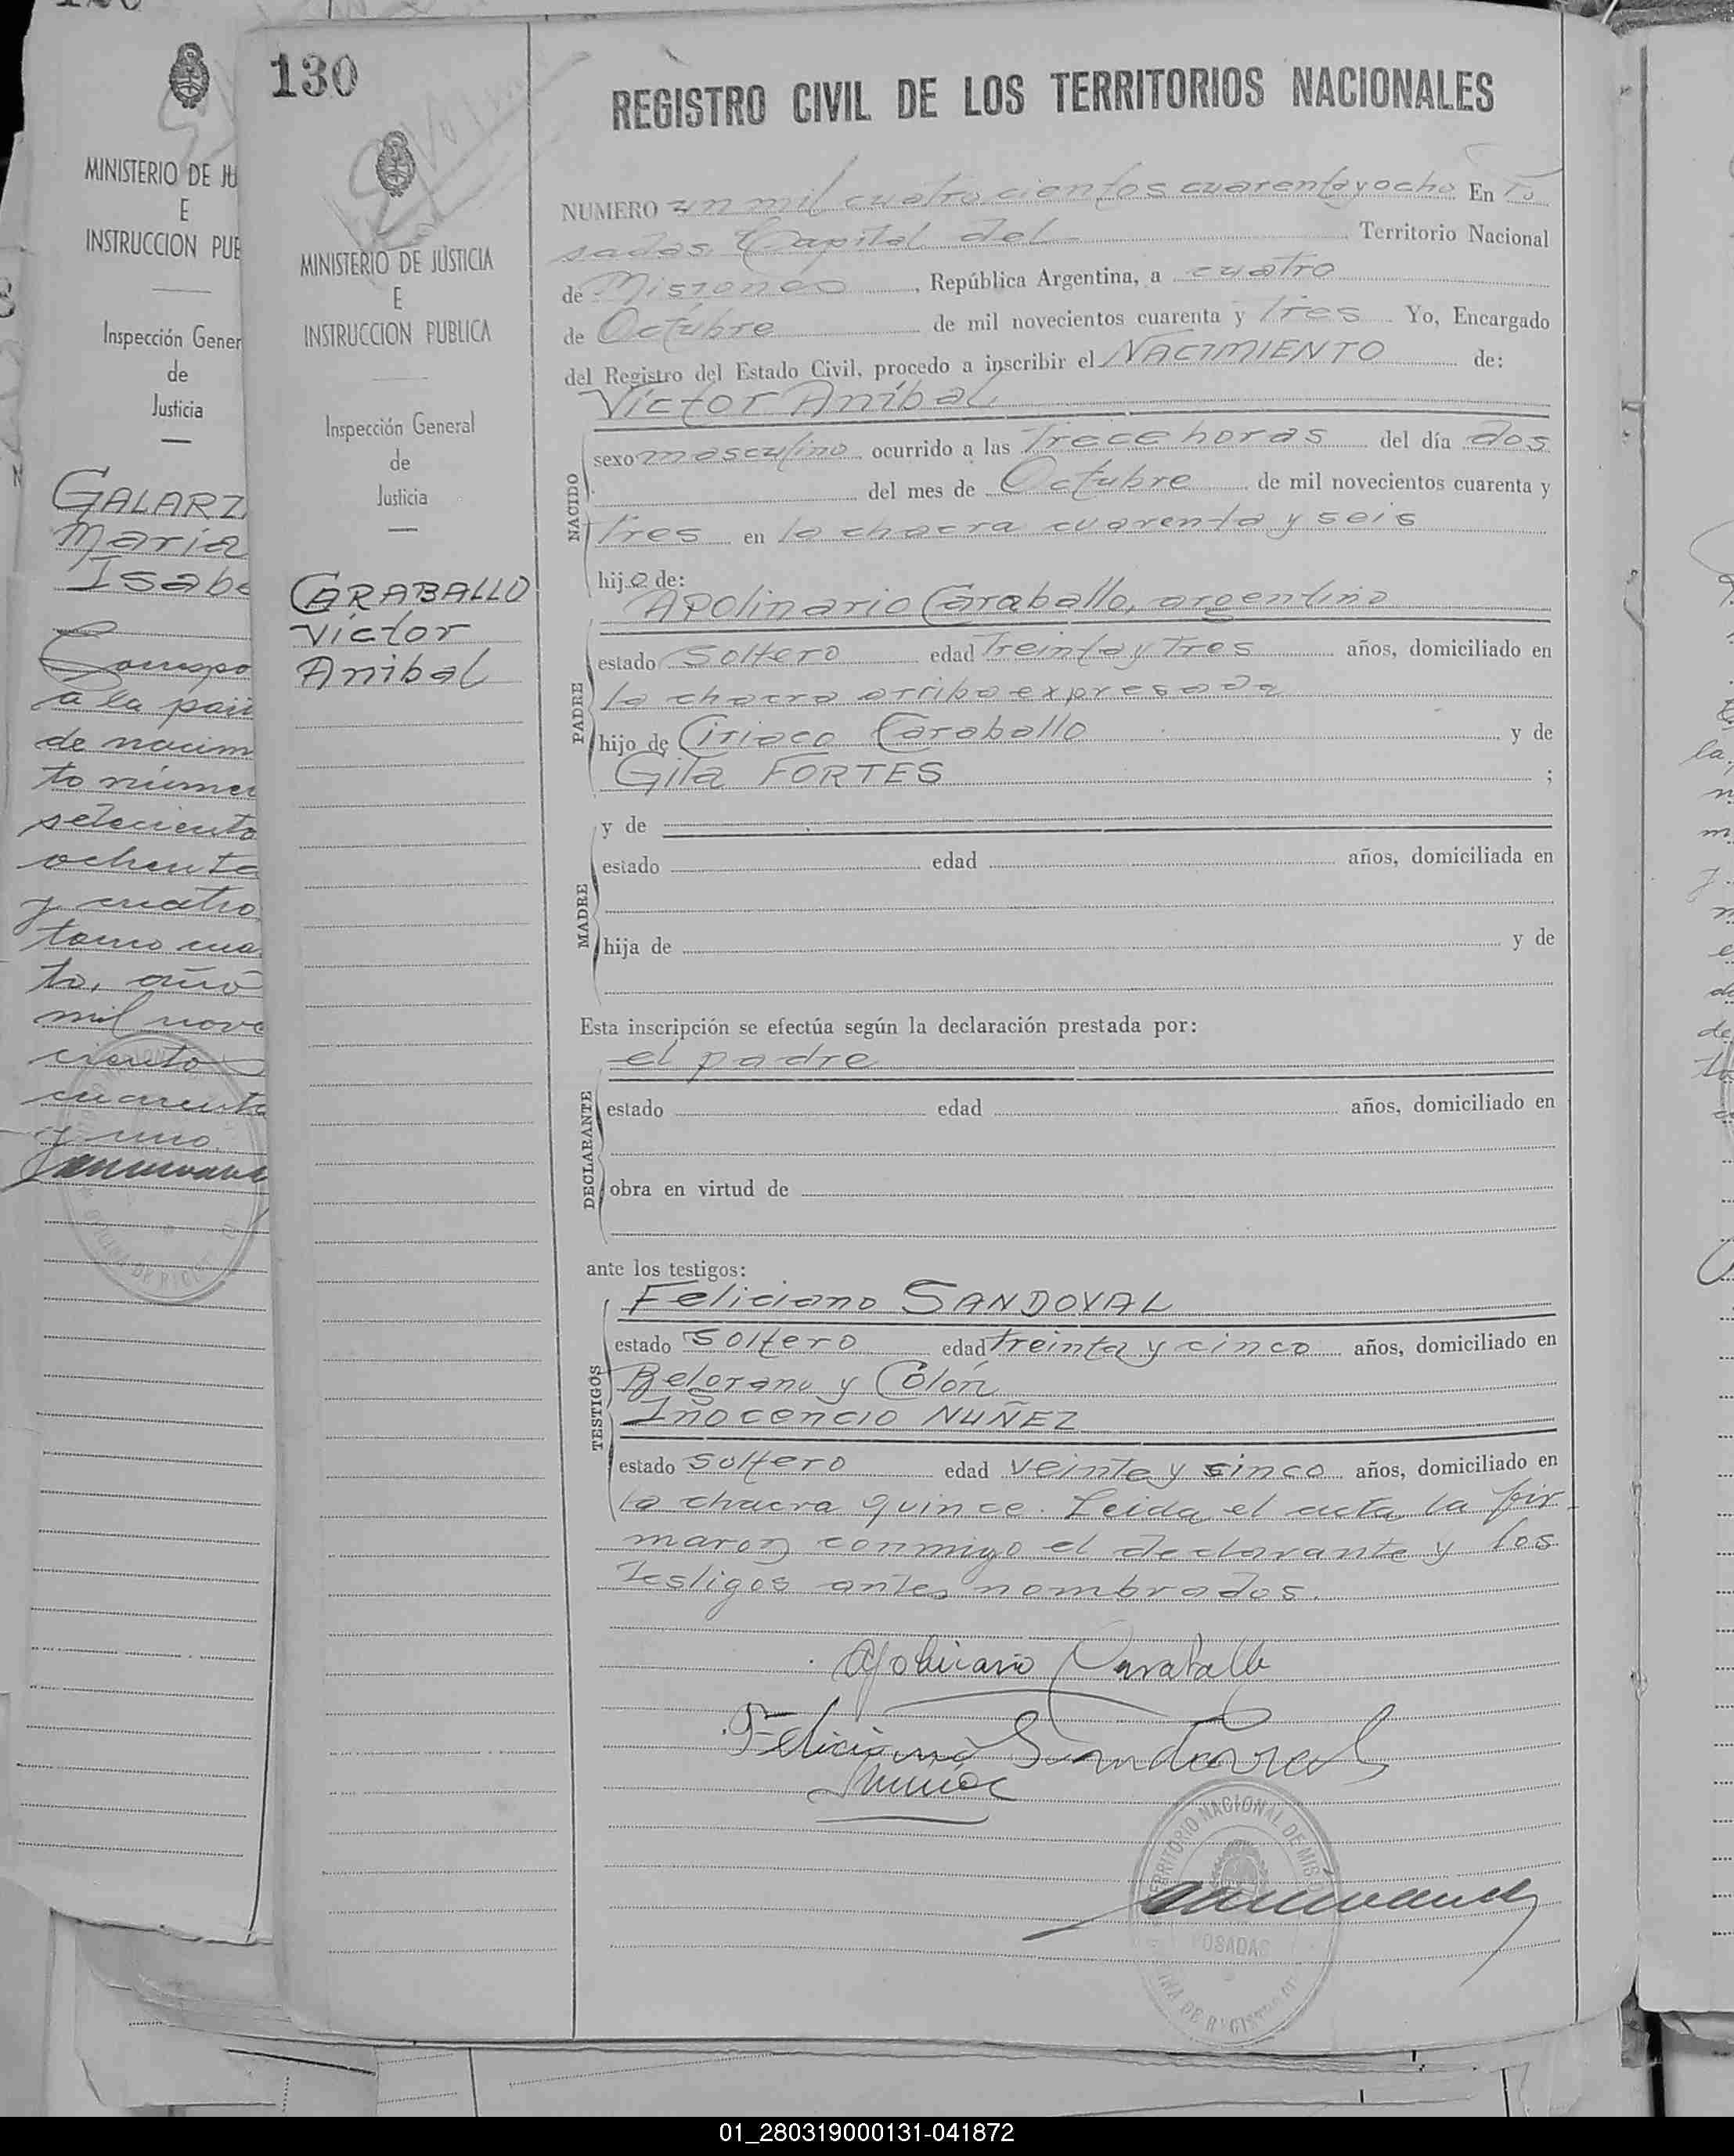 MINISTERIO DE JU
E
INSTRUCCION PUB
Inspección Gener
de
Justicia
GALARZ
Maria
Isabe
Correspo
a la parti
de nacim
to númer
seteciento
ochenta
y cuatro
tomo cua
to, año
mil nove
ciento
cuarenta
y uno.
130
MINISTERIO DE JUSTICIA
E
INSTRUCCION PUBLICA
Inspección General
de
Justicia
CARABALLO
Víctor
Anibal
REGISTRO CIVIL DE LOS TERRITORIOS NACIONALES
NUMERO un mil cuatrocientos cuarenta y ocho En Po
sadas Capital del Territorio Nacional
de Misiones, República Argentina, a cuatro
de Octubre de mil novecientos cuarenta y tres Yo, Encargado
del Registro del Estado Civil, procedo a inscribir el NACIMIENTO de:
Víctor Aníbal
NACIDO
sexo masculino ocurrido a las trece horas del día dos
del mes de Octubre de mil novecientos cuarenta y
tres en la chacra cuarenta y seis
hijo de:
Apolinario Caraballo, argentino
PADRE
estado soltero edad treinta y tres años, domiciliado en
la chacra arriba expresada
hijo de Ciriaco Caraballo y de
Gila FORTES ;
MADRE
y de
estado edad años, domiciliada en
hija de y de
Esta inscripción se efectúa según la declaración prestada por:
el padre
DECLARANTE
estado edad años, domiciliado en
obra en virtud de
ante los testigos:
Feliciano SANDOVAL
TESTIGOS
estado soltero edad treinta y cinco años, domiciliado en
Belgrano y Colón
Inocencio NUÑEZ
estado soltero edad veinte y cinco años, domiciliado en
la chacra quince. Leida el acta la fir-
maron conmigo el declarante y los
testigos antes nombrados.
Apolinario Caraballo
Feliciano Sandoval
TERRITORIO NACIONAL DE MIS
POSADAS
01_280319000131-041872